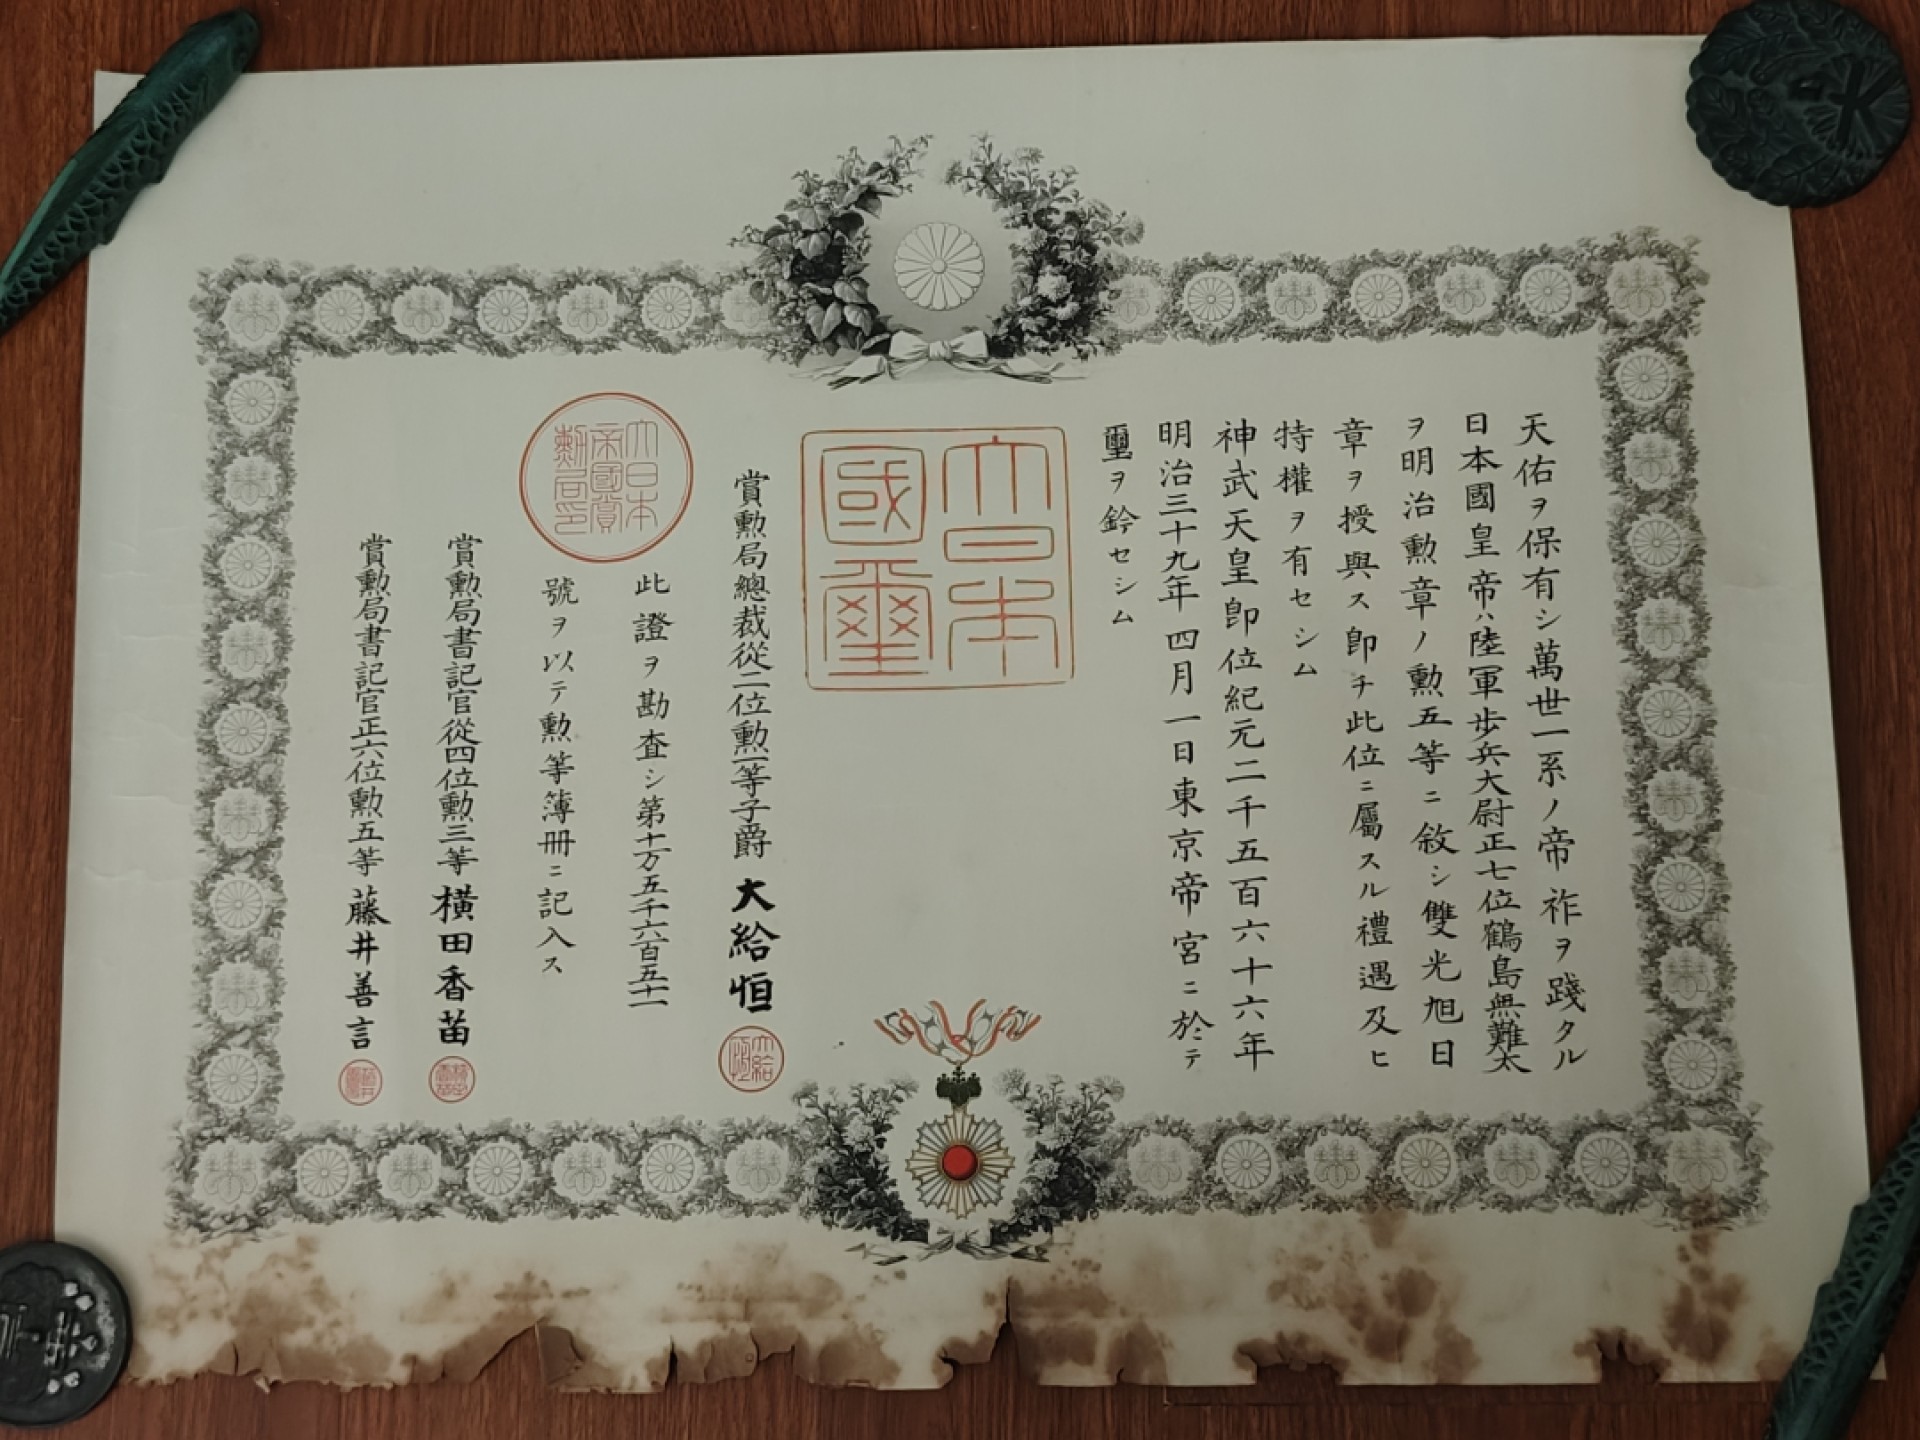 天佑ヲ保有シ萬世一系ノ帝祚ヲ踐タル
日本國皇帝ハ陸軍歩兵大尉正七位鶴島無難太
ヲ明治勲章ノ勲五等ニ敘シ雙光旭日
章ヲ授與ス即チ此位ニ屬スル禮遇及ヒ
特權ヲ有セシム
神武天皇即位紀元二千五百六十六年
明治三十九年四月一日東京帝宮ニ於テ
璽ヲ鈐セシム
大日本
國璽
賞勲局總裁從二位勲一等子爵 大給恒
此證ヲ勘査シ第十万五千六百五十一
號ヲ以テ勲等簿冊ニ記入ス
大日本
帝國賞
勲局印
賞勲局書記官從四位勲三等 横田香苗
賞勲局書記官正六位勲五等 藤井善言